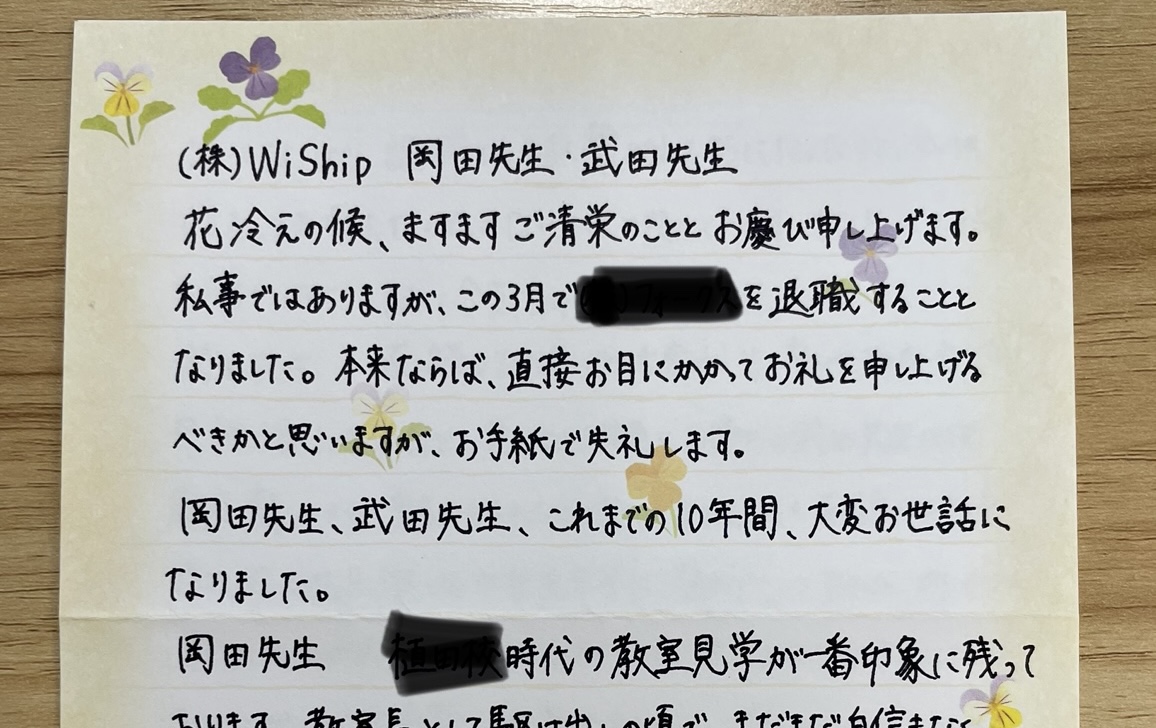 (株)WiShip 岡田先生・武田先生
花冷えの候、ますますご清栄のこととお慶び申し上げます。
私事ではありますが、この3月で を退職することと
なりました。本来ならば、直接お目にかかってお礼を申し上げる
べきかと思いますが、お手紙で失礼します。
岡田先生、武田先生、これまでの10年間、大変お世話に
なりました。
岡田先生 時代の教室見学が一番印象に残って
おります。教室長として駆け出しの頃で、まだまだ自信もなく